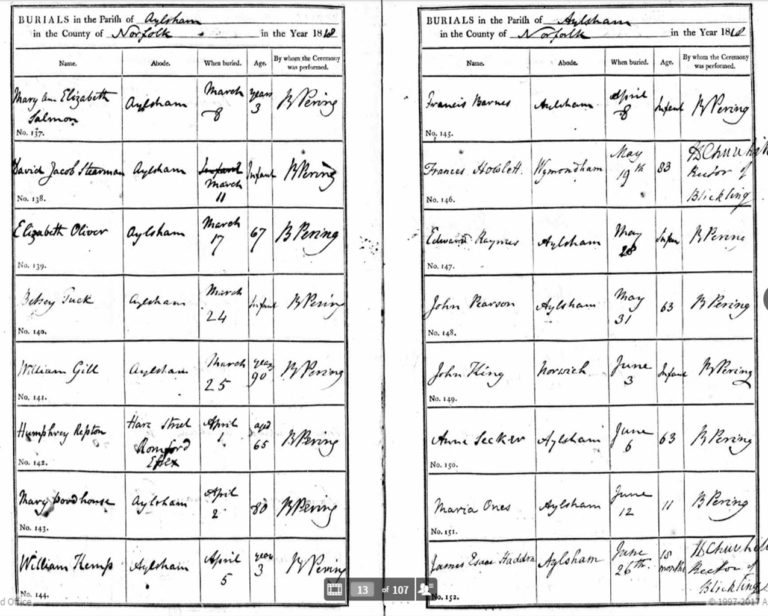 BURIALS in the Parish of Aylsham
in the County of Norfolk in the Year 1818
Name. Abode. When buried. Age. By whom the Ceremony was performed.
Mary Ann Elizabeth Salmon Aylsham March 8 years 3 B Pering
No. 137.
David Jacob Stearman Aylsham March 11 Infant B Pering
No. 138.
Elizabeth Oliver Aylsham March 17 67 B Pering
No. 139.
Betsey Tuck Aylsham March 24 Infant B Pering
No. 140.
William Gill Aylsham March 25 years 90 B Pering
No. 141.
Humphrey Repton Hare Street Romford Essex April 1 aged 65 B Pering
No. 142.
Mary Woodhouse Aylsham April 2 80 B Pering
No. 143.
William Kemp Aylsham April 5 years 3 B Pering
No. 144.
BURIALS in the Parish of Aylsham
in the County of Norfolk in the Year 1818
Name. Abode. When buried. Age. By whom the Ceremony was performed.
Francis Barnes Aylsham April 8 Infant B Pering
No. 145.
Frances Wymondham May 19th 83 Rector of Blickling
No. 146.
Edward Haymes Aylsham May B Pering
No. 147.
John Pearson Aylsham May 31 63 B Pering
No. 148.
John King Norwich June 3 Infant B Pering
No. 149.
Anne Secker Aylsham June 6 63 B Pering
No. 150.
Maria Ones Aylsham June 12 11 B Pering
No. 151.
James Aylsham June 26th. months Rector of Blickling
No. 152.
13 of 107